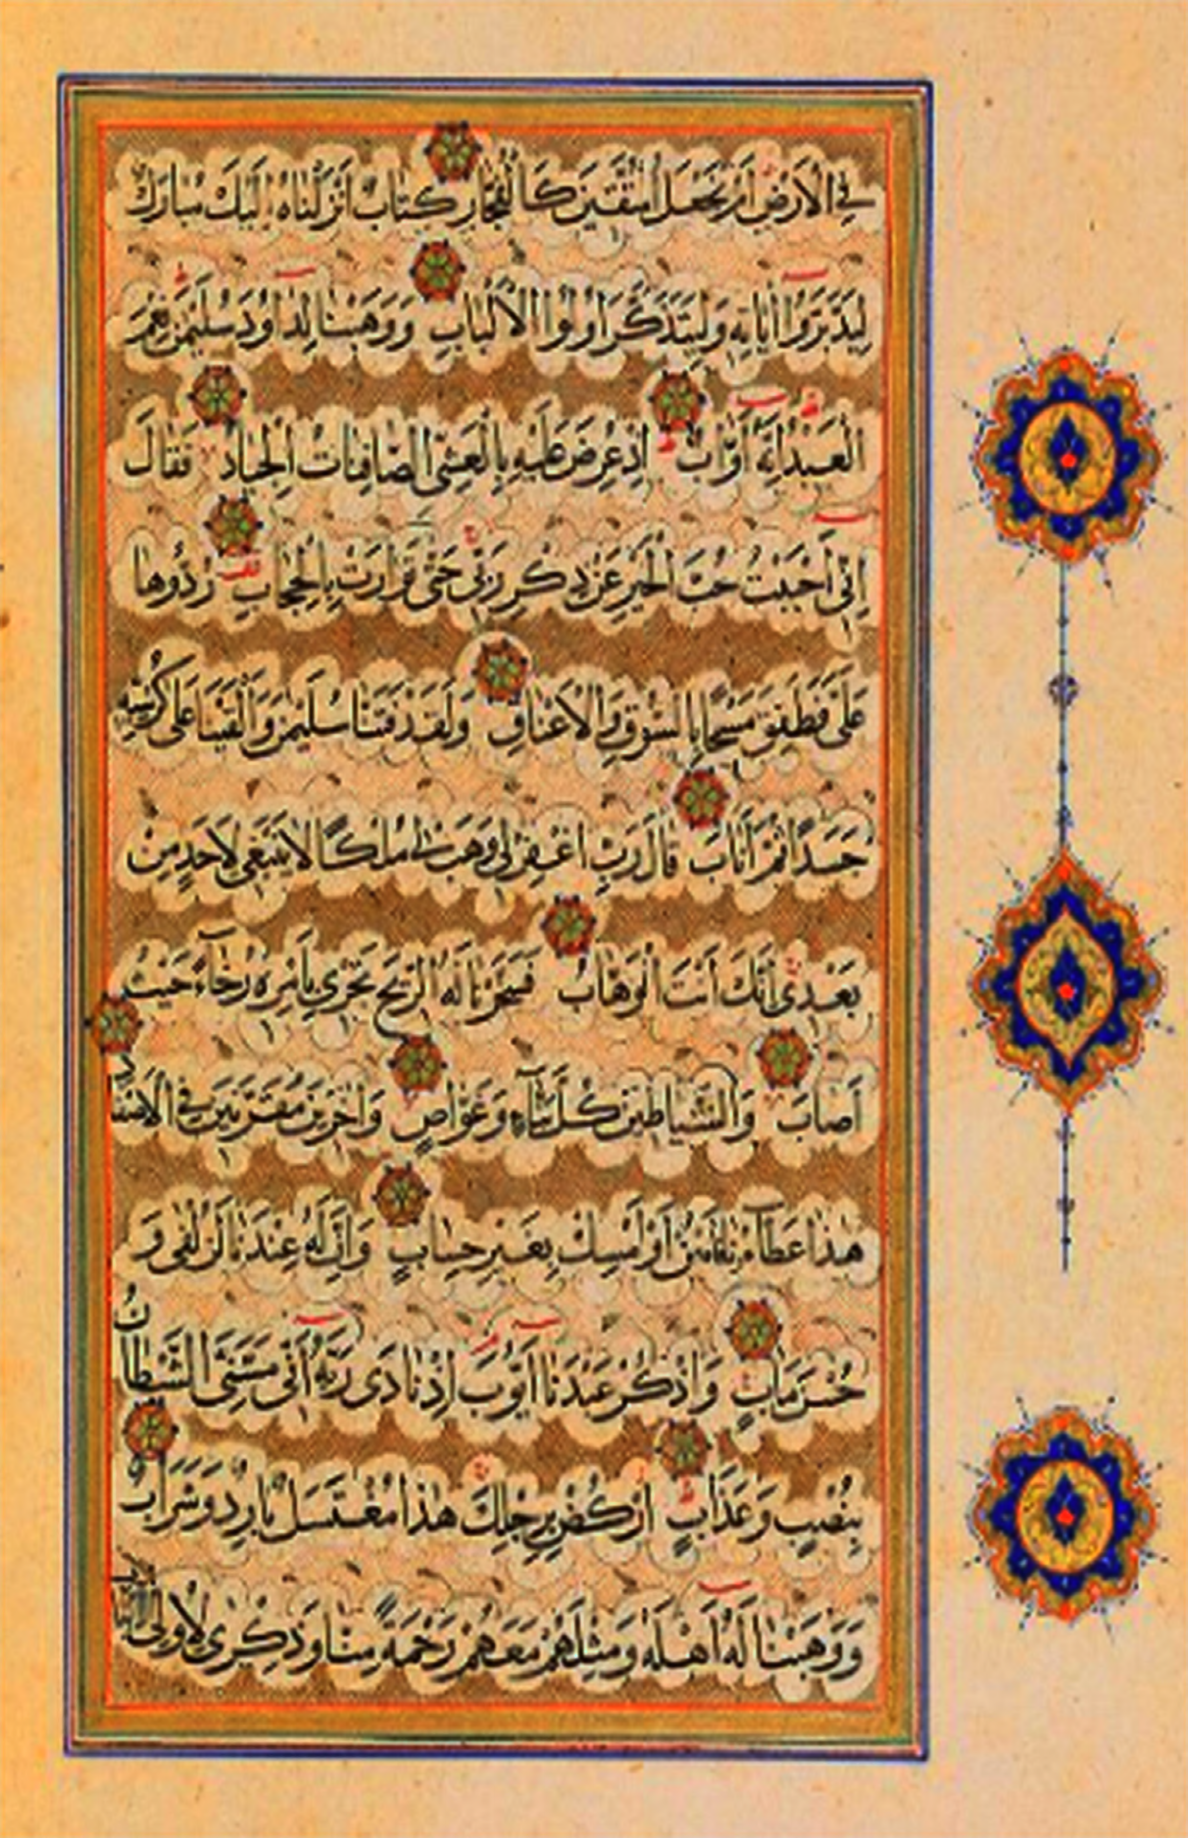 فِي الْاَرْضِ اَمْ نَجْعَلُ الْمُتَّقِينَ كَالْفُجَّارِ كِتَابٌ اَنْزَلْنَاهُ اِلَيْكَ مُبَارَكٌ
لِيَدَّبَّرُوا اٰيَاتِهِ وَلِيَتَذَكَّرَ اُولُوا الْاَلْبَابِ وَوَهَبْنَا لِدَاوُدَ سُلَيْمٰنَ نِعْمَ
الْعَبْدُ اِنَّهُ اَوَّابٌ اِذْ عُرِضَ عَلَيْهِ بِالْعَشِيِّ الصَّافِنَاتُ الْجِيَادُ فَقَالَ
اِنِّي اَحْبَبْتُ حُبَّ الْخَيْرِ عَنْ ذِكْرِ رَبِّي حَتّٰى تَوَارَتْ بِالْحِجَابِ رُدُّوهَا
عَلَيَّ فَطَفِقَ مَسْحًا بِالسُّوقِ وَالْاَعْنَاقِ وَلَقَدْ فَتَنَّا سُلَيْمٰنَ وَاَلْقَيْنَا عَلٰى كُرْسِيِّهِ
جَسَدًا ثُمَّ اَنَابَ قَالَ رَبِّ اغْفِرْ لِي وَهَبْ لِي مُلْكًا لَا يَنْبَغِي لِاَحَدٍ مِنْ
بَعْدِي اِنَّكَ اَنْتَ الْوَهَّابُ فَسَخَّرْنَا لَهُ الرِّيحَ تَجْرِي بِاَمْرِهِ رُخَاۤءً حَيْثُ
اَصَابَ وَالشَّيَاطِينَ كُلَّ بَنَّاۤءٍ وَغَوَّاصٍ وَاٰخَرِينَ مُقَرَّنِينَ فِي الْاَصْفَادِ
هٰذَا عَطَاۤؤُنَا فَامْنُنْ اَوْ اَمْسِكْ بِغَيْرِ حِسَابٍ وَاِنَّ لَهُ عِنْدَنَا لَزُلْفٰى وَ
حُسْنَ مَاٰبٍ وَاذْكُرْ عَبْدَنَا اَيُّوبَ اِذْ نَادٰى رَبَّهُ اَنِّي مَسَّنِيَ الشَّيْطَانُ
بِنُصْبٍ وَعَذَابٍ اُرْكُضْ بِرِجْلِكَ هٰذَا مُغْتَسَلٌ بَارِدٌ وَشَرَابٌ
وَوَهَبْنَا لَهُ اَهْلَهُ وَمِثْلَهُمْ مَعَهُمْ رَحْمَةً مِنَّا وَذِكْرٰى لِاُولِي الْاَلْبَابِ